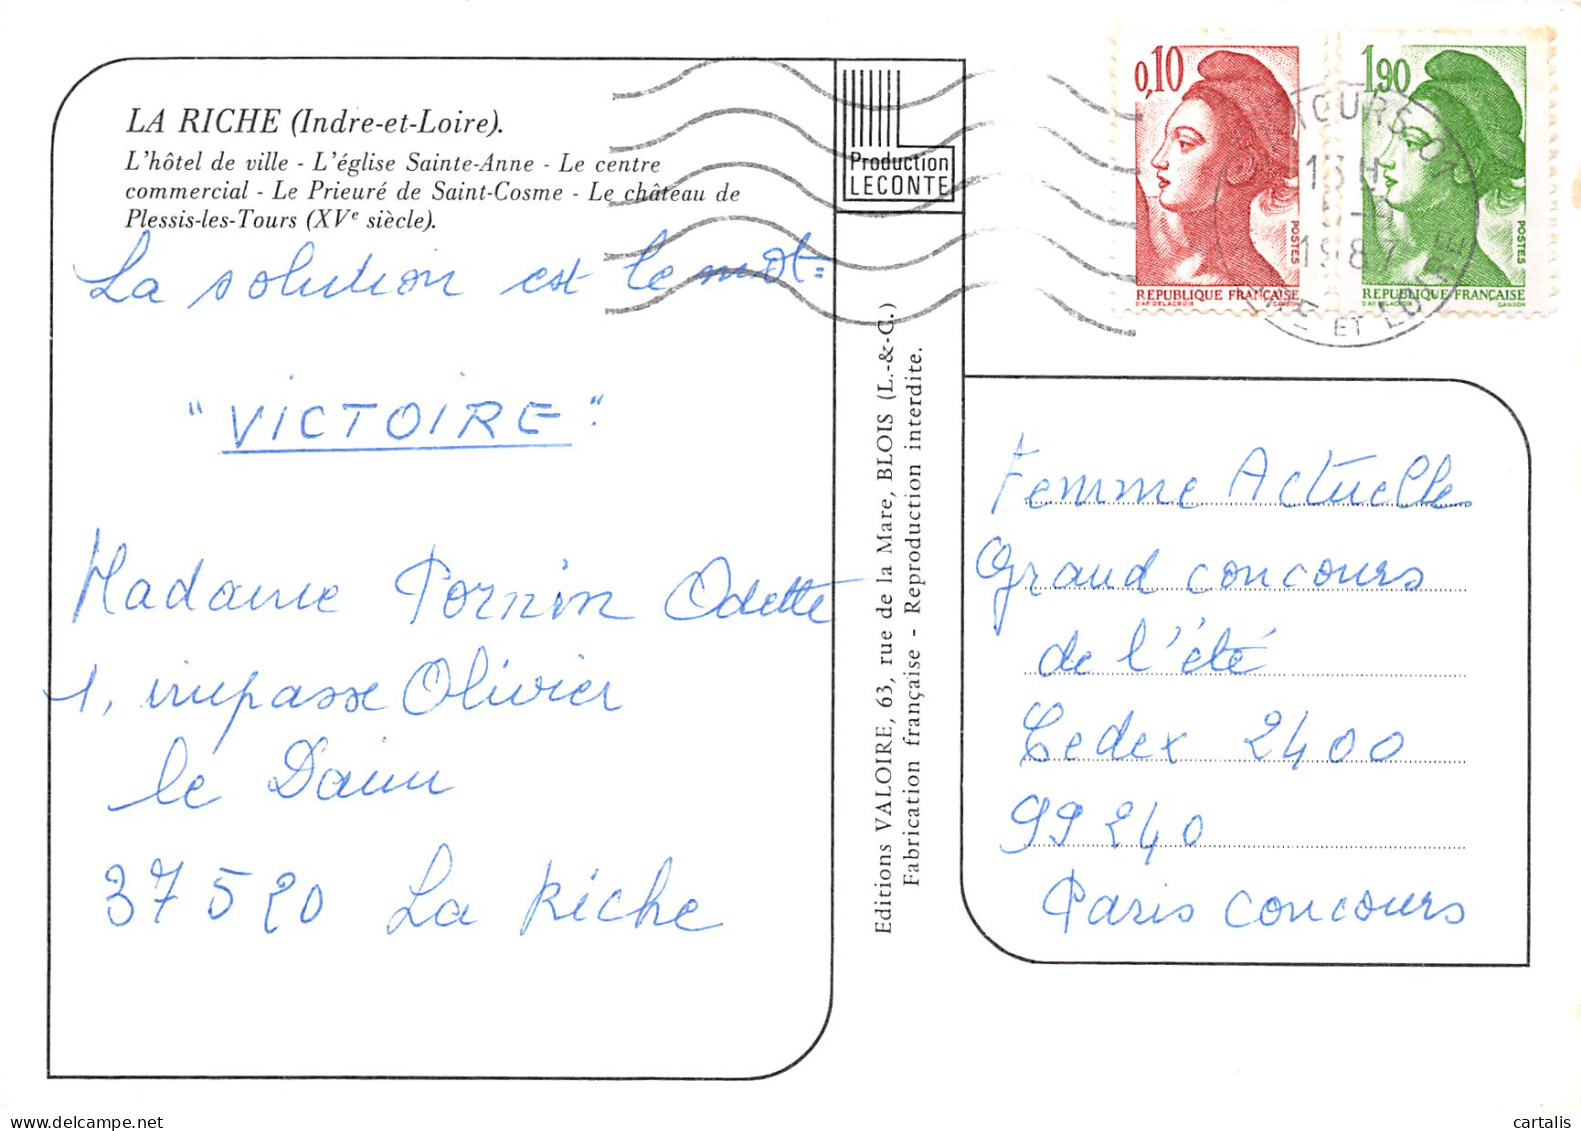 LA RICHE (Indre-et-Loire).
L'hôtel de ville - L'église Sainte-Anne - Le centre
commercial - Le Prieuré de Saint-Cosme - Le château de
Plessis-les-Tours (XVe siècle).
La solution est le mot=
"VICTOIRE".
Madame Pornin Odette
1, impasse Olivier
le Daim
37520 La Riche
Production
LECONTE
Editions VALOIRE, 63, rue de la Mare, BLOIS (L.-&-C.)
Fabrication française - Reproduction interdite.
0,10
POSTES
REPUBLIQUE FRANÇAISE
D'AP. DELACROIX
1,90
POSTES
REPUBLIQUE FRANÇAISE
GANDON
TOURS
13H
1987
ET LOIRE
Femme Actuelle
Grand concours
de l'été
Cedex 2400
99240
Paris concours
cartalis
www.delcampe.net